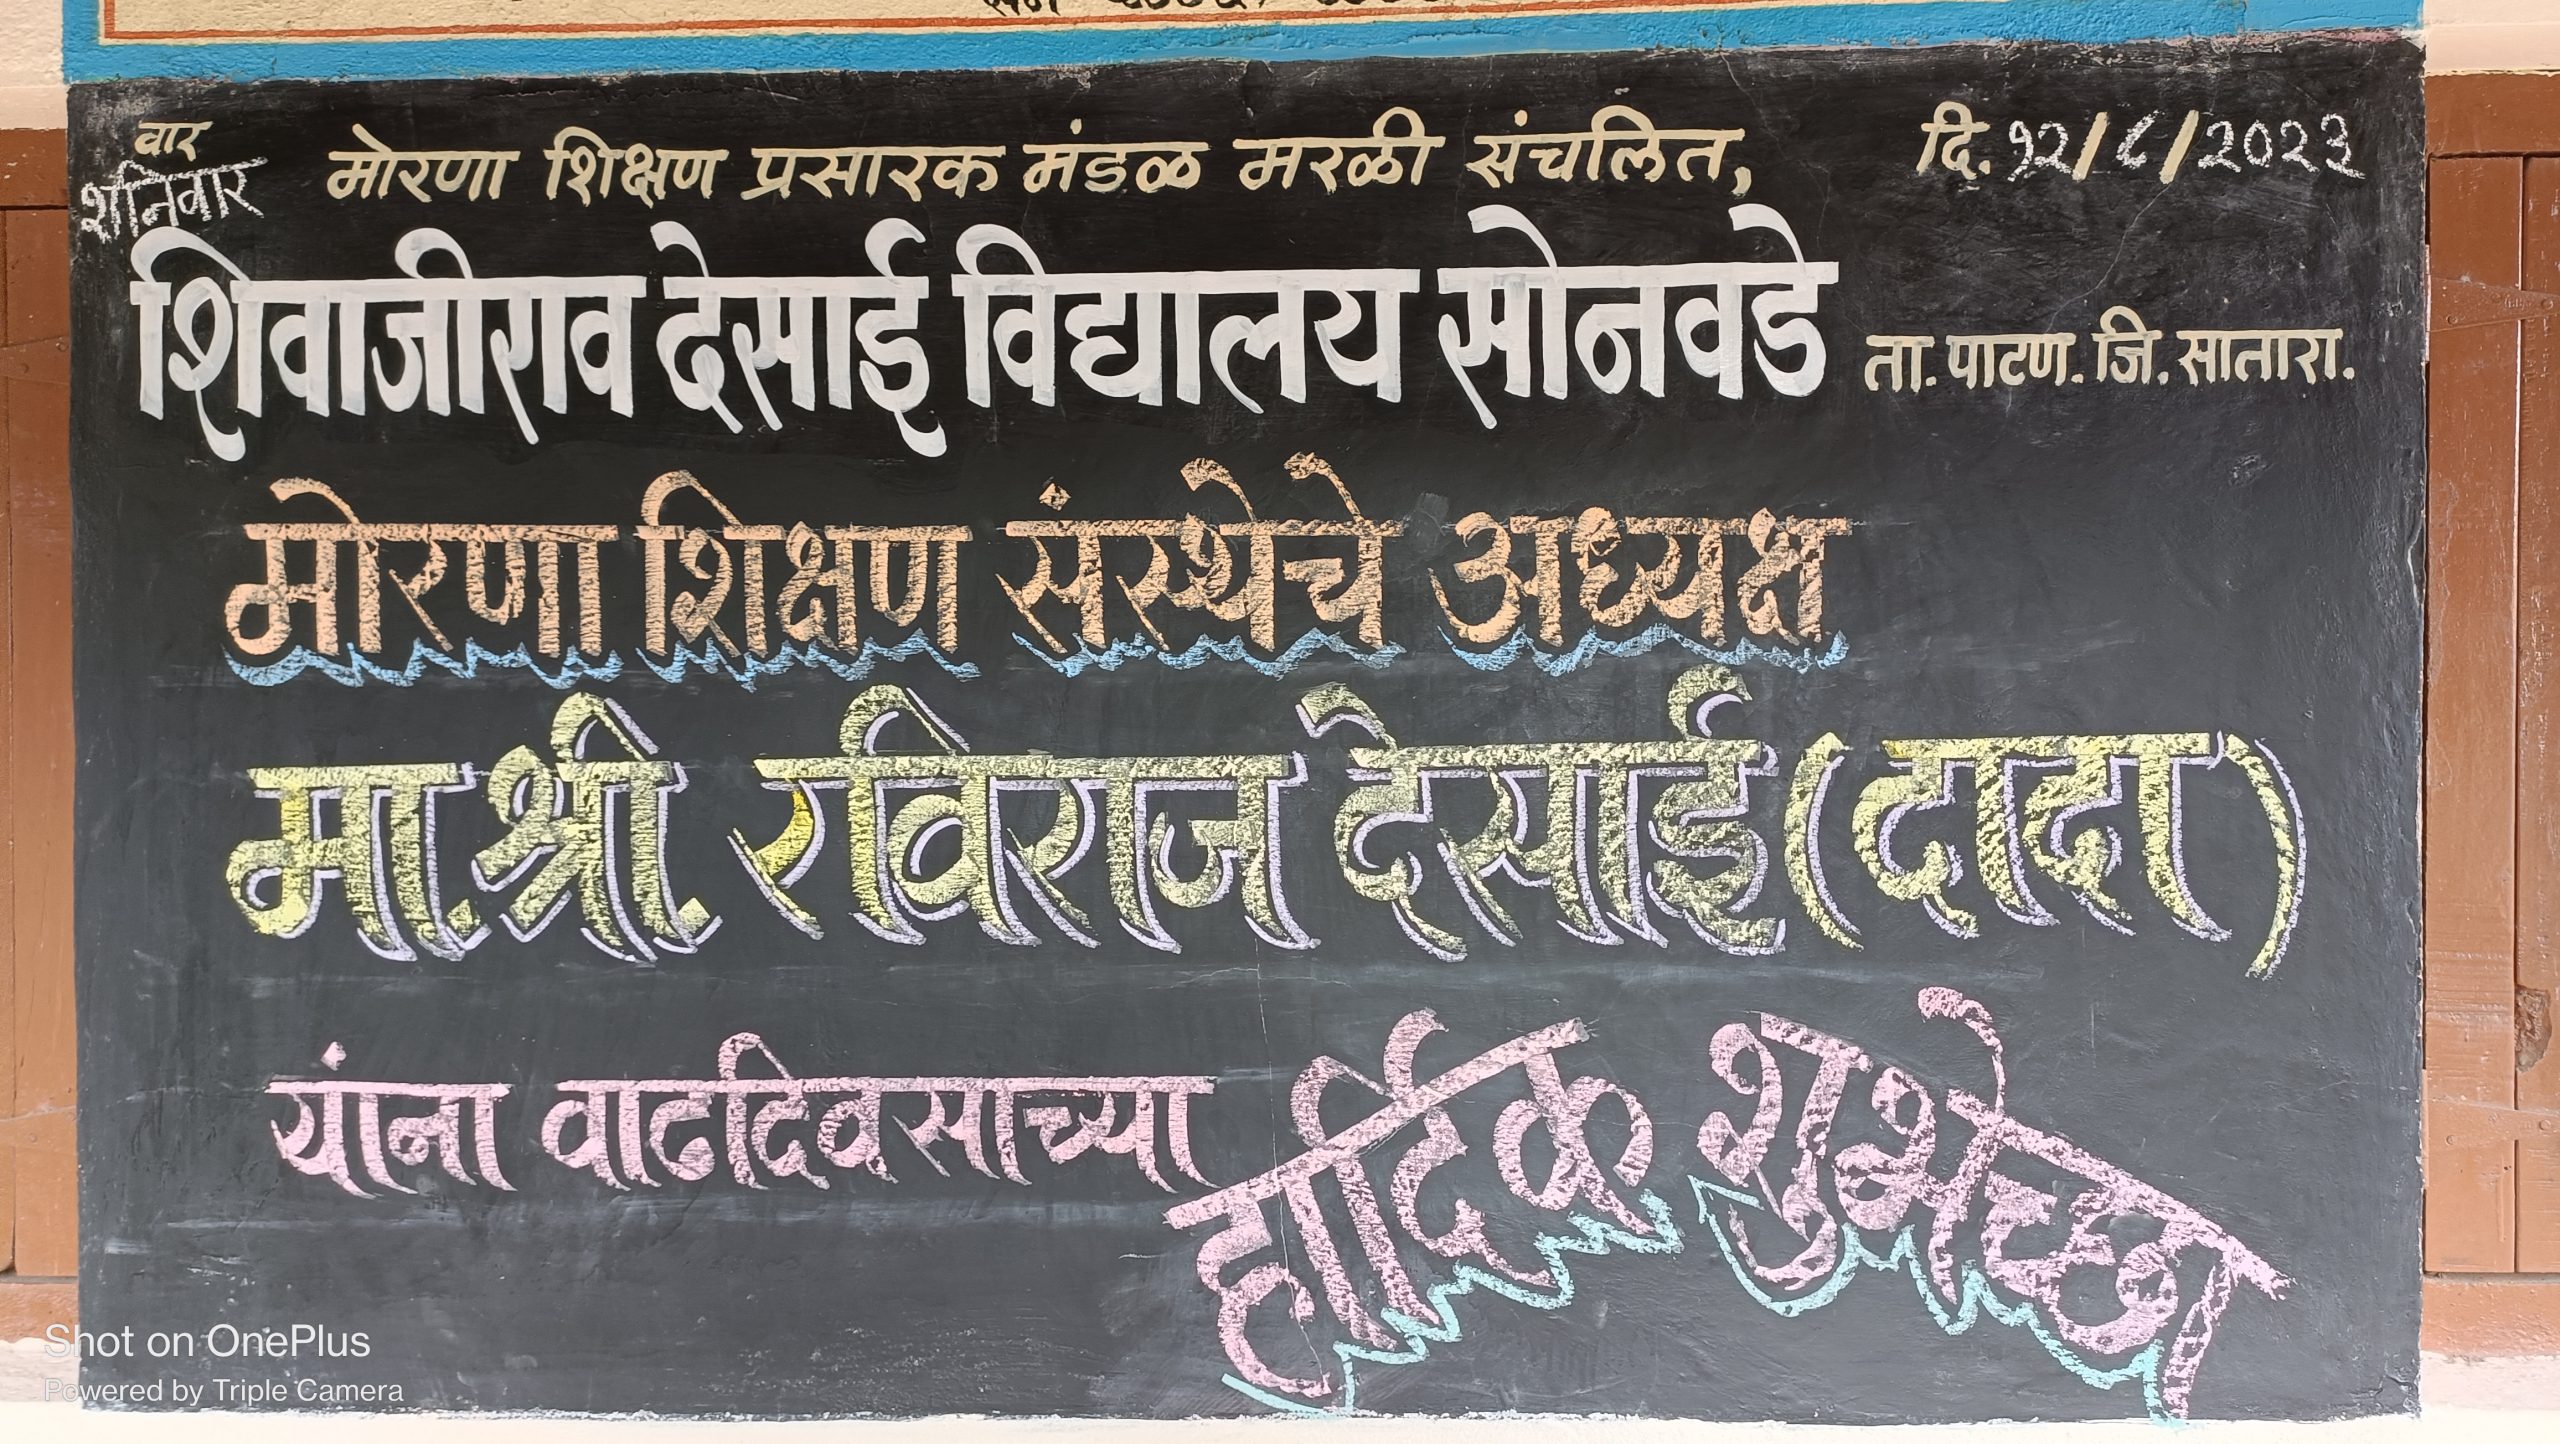 वार
शनिवार
मोरणा शिक्षण प्रसारक मंडळ मरळी संचलित,
दि. १२/८/२०२३
शिवाजीराव देसाई विद्यालय सोनवडे
ता. पाटण. जि. सातारा.
मोरणा शिक्षण संस्थेचे अध्यक्ष
मा. श्री. रविराज देसाई (दादा)
यांना वाढदिवसाच्या हार्दिक शुभेच्छा
Shot on OnePlus
Powered by Triple Camera